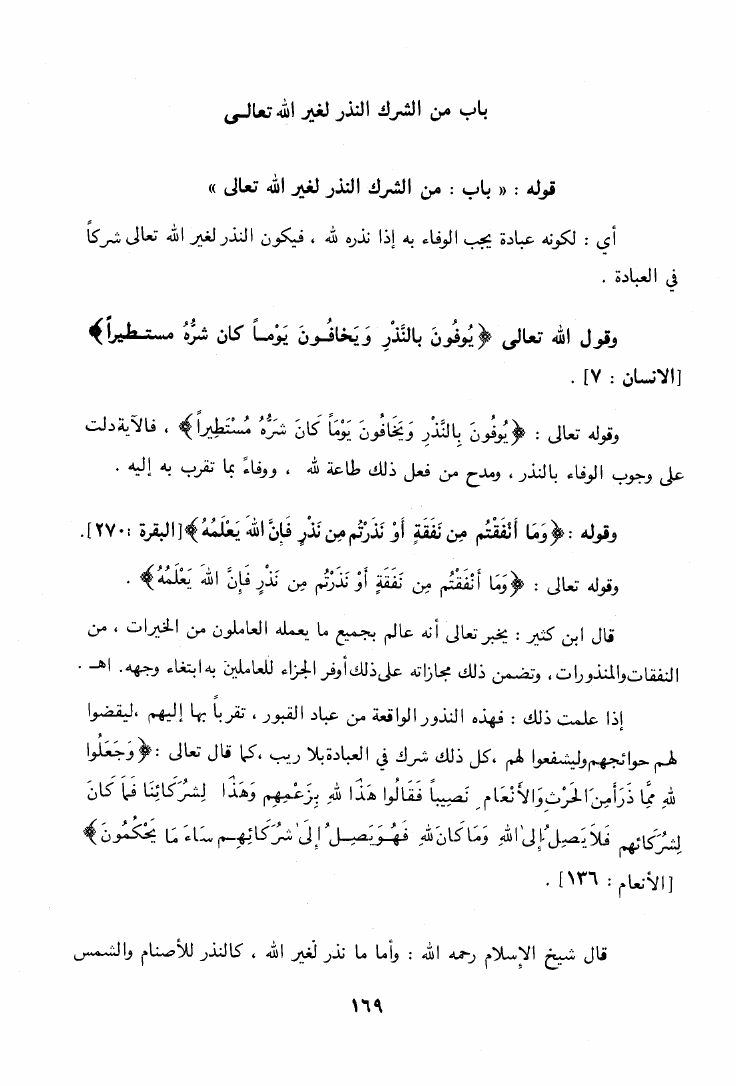 باب من الشرك النذر لغير الله تعالى
قوله : « باب : من الشرك النذر لغير الله تعالى »
أي : لكونه عبادة يجب الوفاء به إذا نذره لله ، فيكون النذر لغير الله تعالى شركاً
في العبادة .
وقول الله تعالى ﴿يُوفُونَ بالنَّذْرِ وَيَخافُونَ يَوْماً كان شرُّهُ مستطيراً﴾
[الانسان : ٧] .
وقوله تعالى : ﴿يُوفُونَ بِالنَّذْرِ وَيَخَافُونَ يَوْمَاً كَانَ شَرُّهُ مُسْتَطِيراً﴾ ، فالآية دلت
على وجوب الوفاء بالنذر ، ومدح من فعل ذلك طاعة لله ، ووفاءً بما تقرب به إليه .
وقوله : ﴿وَمَا أَنْفَقْتُم مِن نَفَقَةٍ أَوْ نَذَرْتُم مِن نَذْرٍ فَإِنَّ اللهَ يَعْلَمُهُ﴾ [البقرة : ٢٧٠] .
وقوله تعالى : ﴿وَمَا أَنْفَقْتُم مِن نَفَقَةٍ أَوْ نَذَرْتُم مِن نَذْرٍ فَإِنَّ اللهَ يَعْلَمُهُ﴾ .
قال ابن كثير : يخبر تعالى أنه عالم بجميع ما يعمله العاملون من الخيرات ، من
النفقات والمنذورات ، وتضمن ذلك مجازاته على ذلك أوفر الجزاء للعاملين به ابتغاء وجهه. اهـ .
إذا علمت ذلك : فهذه النذور الواقعة من عباد القبور ، تقرباً بها إليهم ،ليقضوا
لهم حوائجهم وليشفعوا لهم ،كل ذلك شرك في العبادة بلا ريب ،كما قال تعالى :﴿وَجَعَلُوا
للهِ مِمَّا ذَرَأَ مِنَ الحَرْثِ وَالأَنْعَامِ نَصِيباً فَقَالُوا هَذَا للهِ بِزَعْمِهِم وَهَذَا لِشُرَكَائِنَا فَمَا كَانَ
لِشُرَكَائِهِم فَلَا يَصِلُ إِلَى اللهِ وَمَا كَانَ للهِ فَهُوَ يَصِلُ إِلَى شُرَكَائِهِم سَاءَ مَا يَحْكُمُونَ﴾
[الأنعام : ١٣٦] .
قال شيخ الإسلام رحمه الله : وأما ما نذر لغير الله ، كالنذر للأصنام والشمس
١٦٩